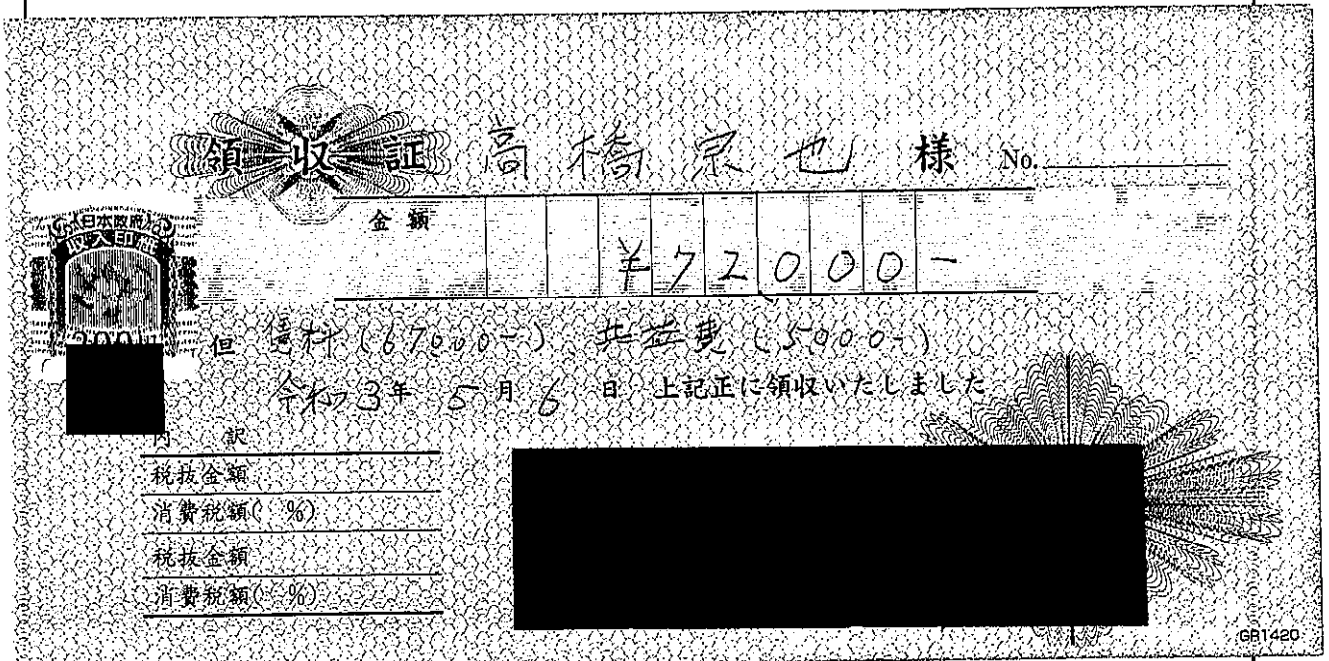 領収証 高橋宗也 様 No.
日本政府
収入印紙
200
金額
¥72000-
但 賃料(67000-)、共益費(5000-)
令和3年 5月 6日 上記正に領収いたしました
内 訳
税抜金額
消費税額( %)
税抜金額
消費税額( %)
GR1420